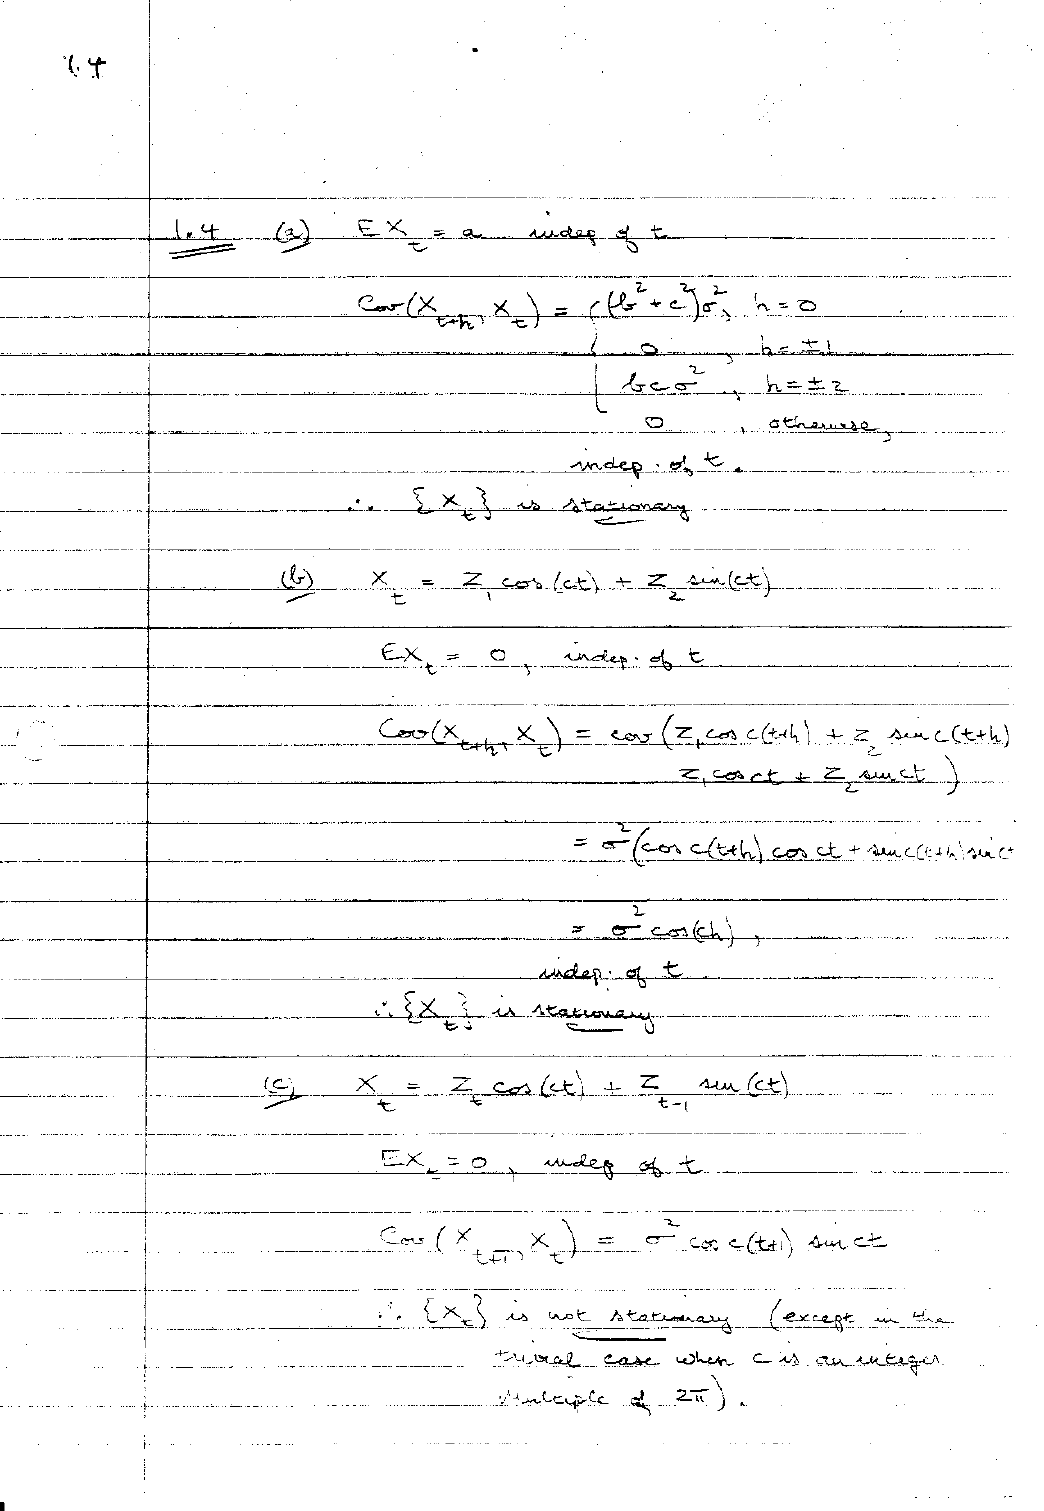 1.4
1.4 (a) EX_t = a indep of t
Cov(X_{t+h}, X_t) = { (b² + c²)σ², h = 0
0 , h = ±1
bcσ² , h = ±2
0 , otherwise,
indep. of t.
∴ {X_t} is stationary
(b) X_t = Z_1 cos(ct) + Z_2 sin(ct)
EX_t = 0, indep. of t
Cov(X_{t+h}, X_t) = cov(Z_1 cos c(t+h) + Z_2 sin c(t+h)
Z_1 cos ct + Z_2 sin ct)
= σ²(cos c(t+h) cos ct + sin c(t+h) sin ct
= σ² cos(ch),
indep. of t
∴ {X_t} is stationary
(c) X_t = Z_t cos(ct) + Z_{t-1} sin(ct)
EX_t = 0, indep of t
Cov(X_{t+1}, X_t) = σ² cos c(t+1) sin ct
∴ {X_t} is not stationary (except in the
trivial case when c is an integer
multiple of 2π).